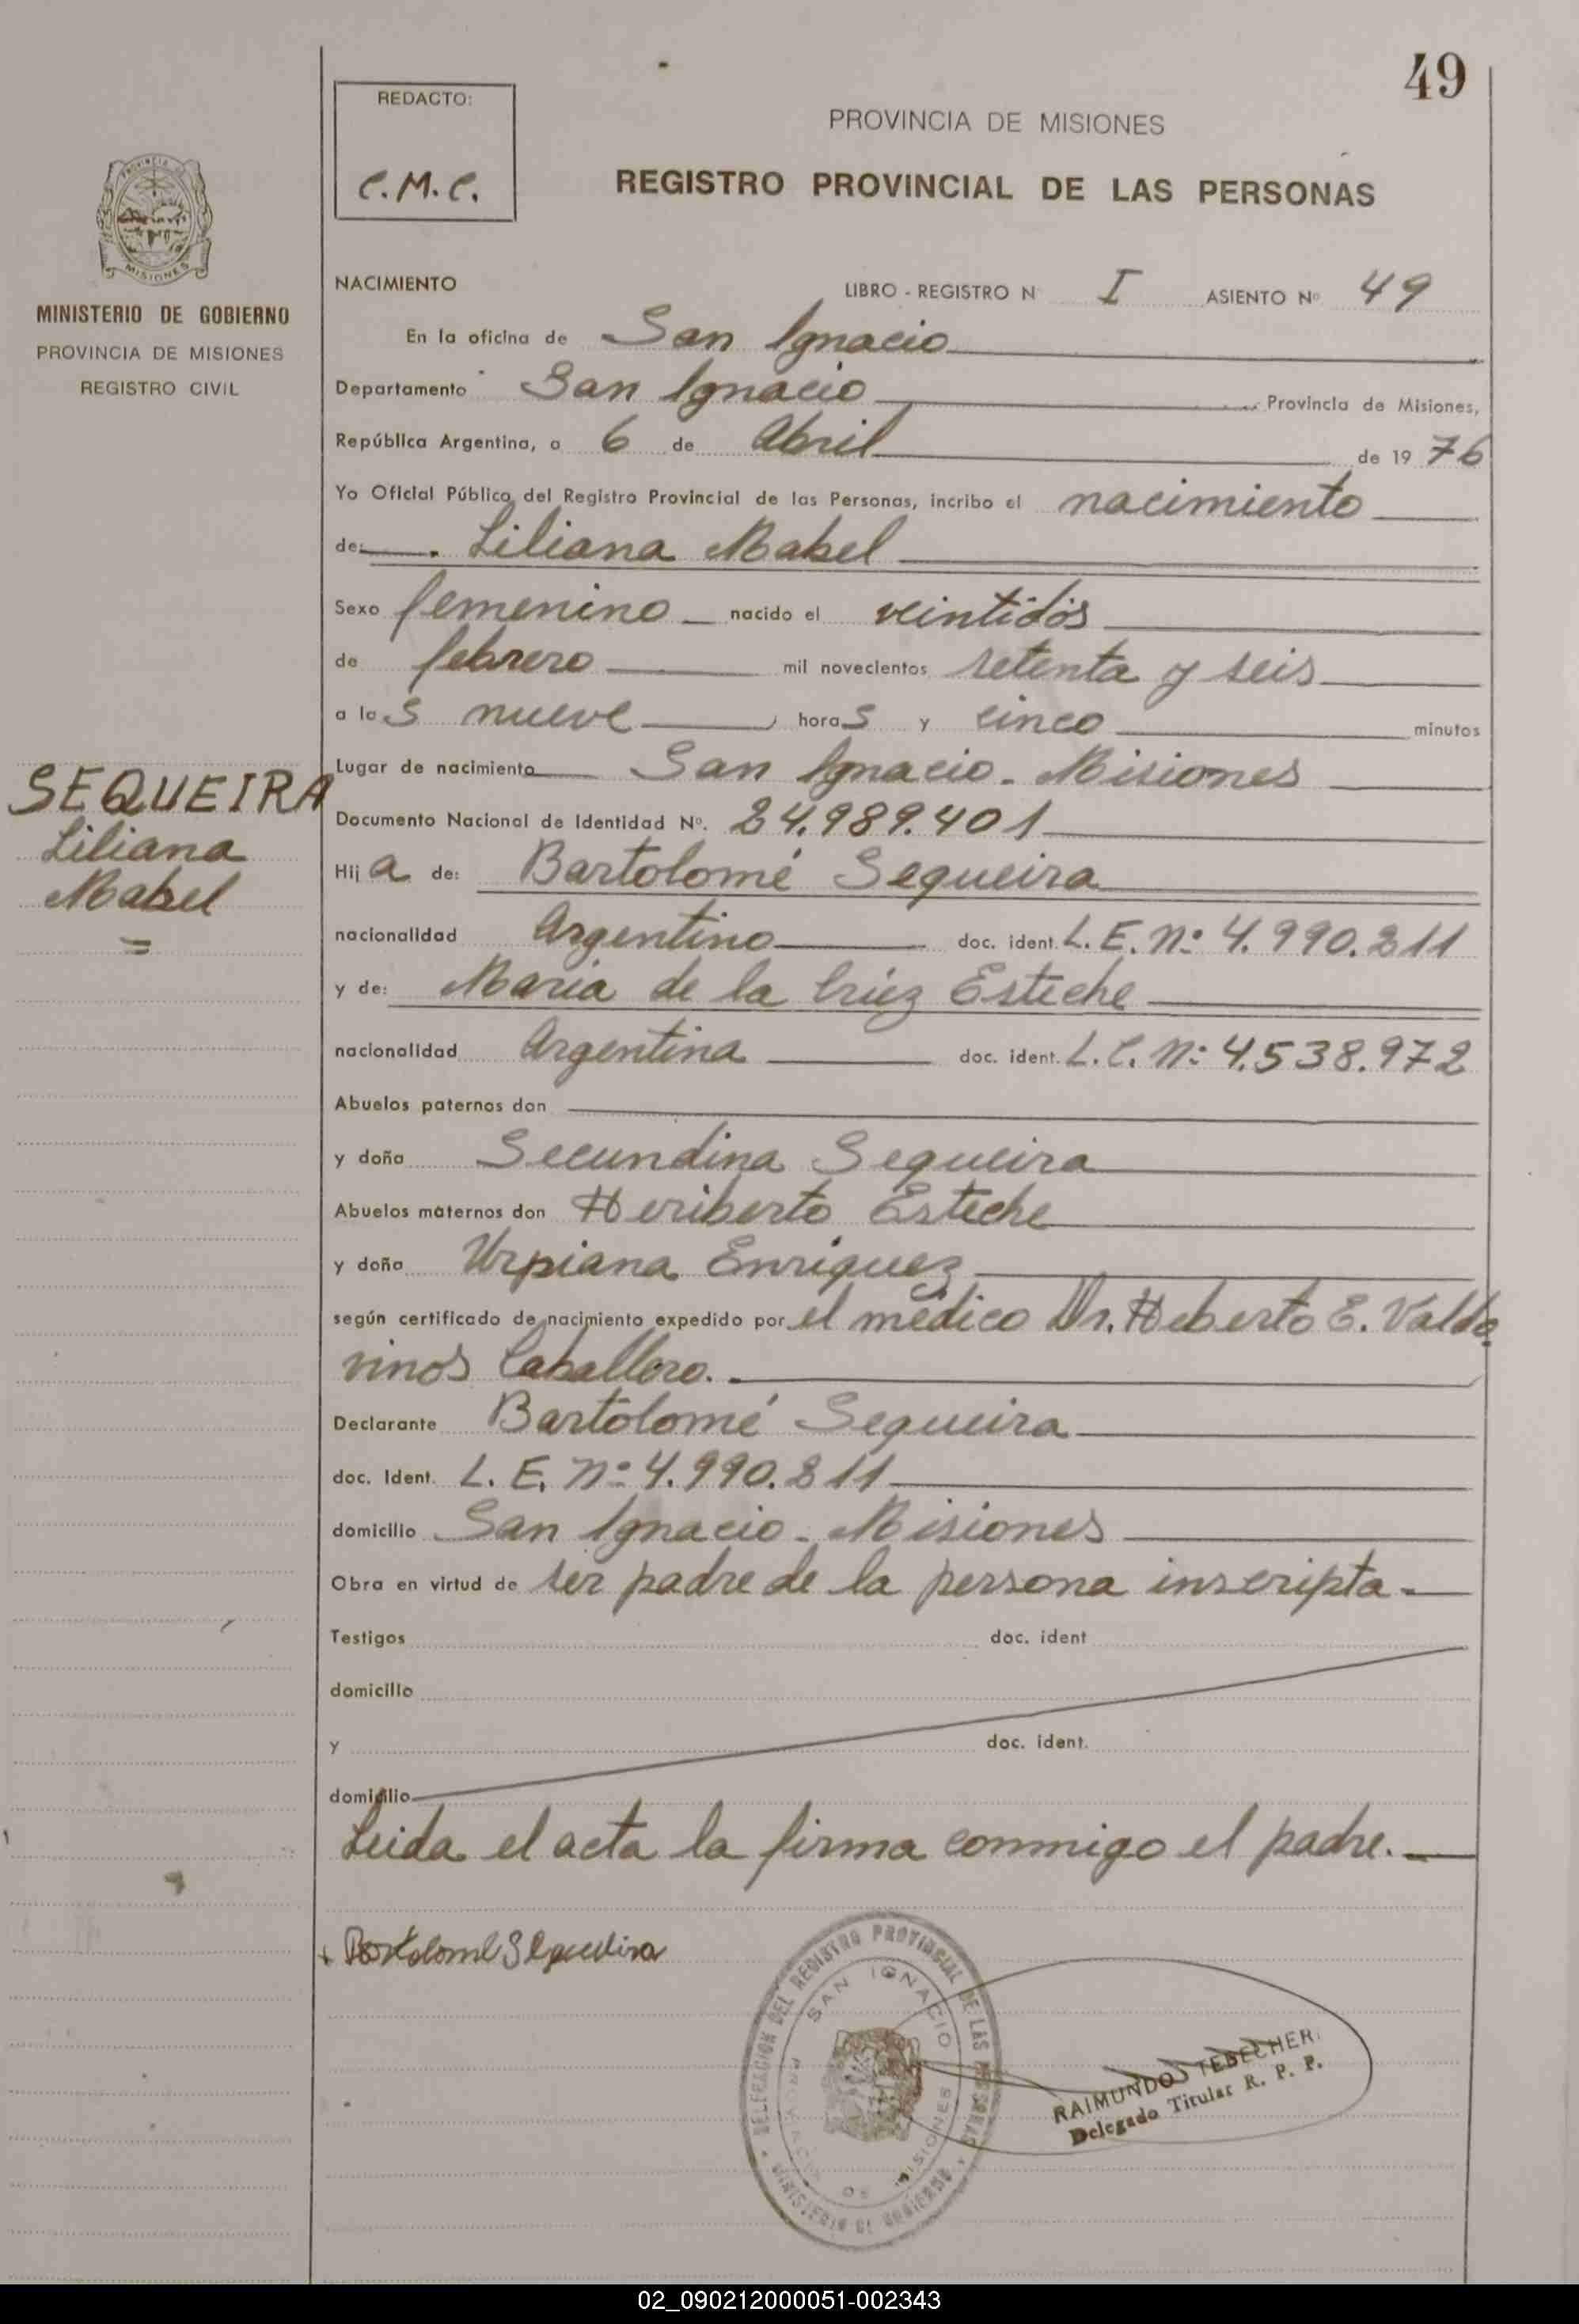 49
REDACTO:
C.M.C.
PROVINCIA DE MISIONES
REGISTRO PROVINCIAL DE LAS PERSONAS
PROVINCIA
MISIONES
MINISTERIO DE GOBIERNO
PROVINCIA DE MISIONES
REGISTRO CIVIL
NACIMIENTO LIBRO - REGISTRO N I ASIENTO Nº 49
En la oficina de San Ignacio
Departamento San Ignacio Provincia de Misiones,
República Argentina, a 6 de Abril de 1976
Yo Oficial Público del Registro Provincial de las Personas, incribo el nacimiento
de: Liliana Mabel
Sexo femenino nacido el veintidós
de febrero mil novecientos setenta y seis
a las nueve horas y cinco minutos
Lugar de nacimiento San Ignacio - Misiones
SEQUEIRA
Liliana
Mabel
Documento Nacional de Identidad Nº. 24.989.401
Hija de: Bartolomé Sequeira
nacionalidad Argentino doc. ident. L.E. Nº 4.990.211
y de: Maria de la Crúz Esteche
nacionalidad Argentina doc. ident. L.C. Nº 4.538.972
Abuelos paternos don
y doña Secundina Sequeira
Abuelos maternos don Heriberto Esteche
y doña Urpiana Enriquez
según certificado de nacimiento expedido por el médico Dr. Heberto E. Valdo
vinos Caballero.
Declarante Bartolomé Sequeira
doc. Ident. L.E. Nº 4.990.211
domicilio San Ignacio - Misiones
Obra en virtud de ser padre de la persona inscripta.
Testigos doc. ident
domicilio
y doc. ident.
domicilio
Leida el acta la firma conmigo el padre.
Bartolome Sequeira
DELEGACION DEL REGISTRO PROVINCIAL DE LAS PERSONAS
SAN IGNACIO
MISIONES
MINISTERIO DE GOBIERNO
RAIMUNDO TEBECHER
Delegado Titular R. P. P.
02_090212000051-002343